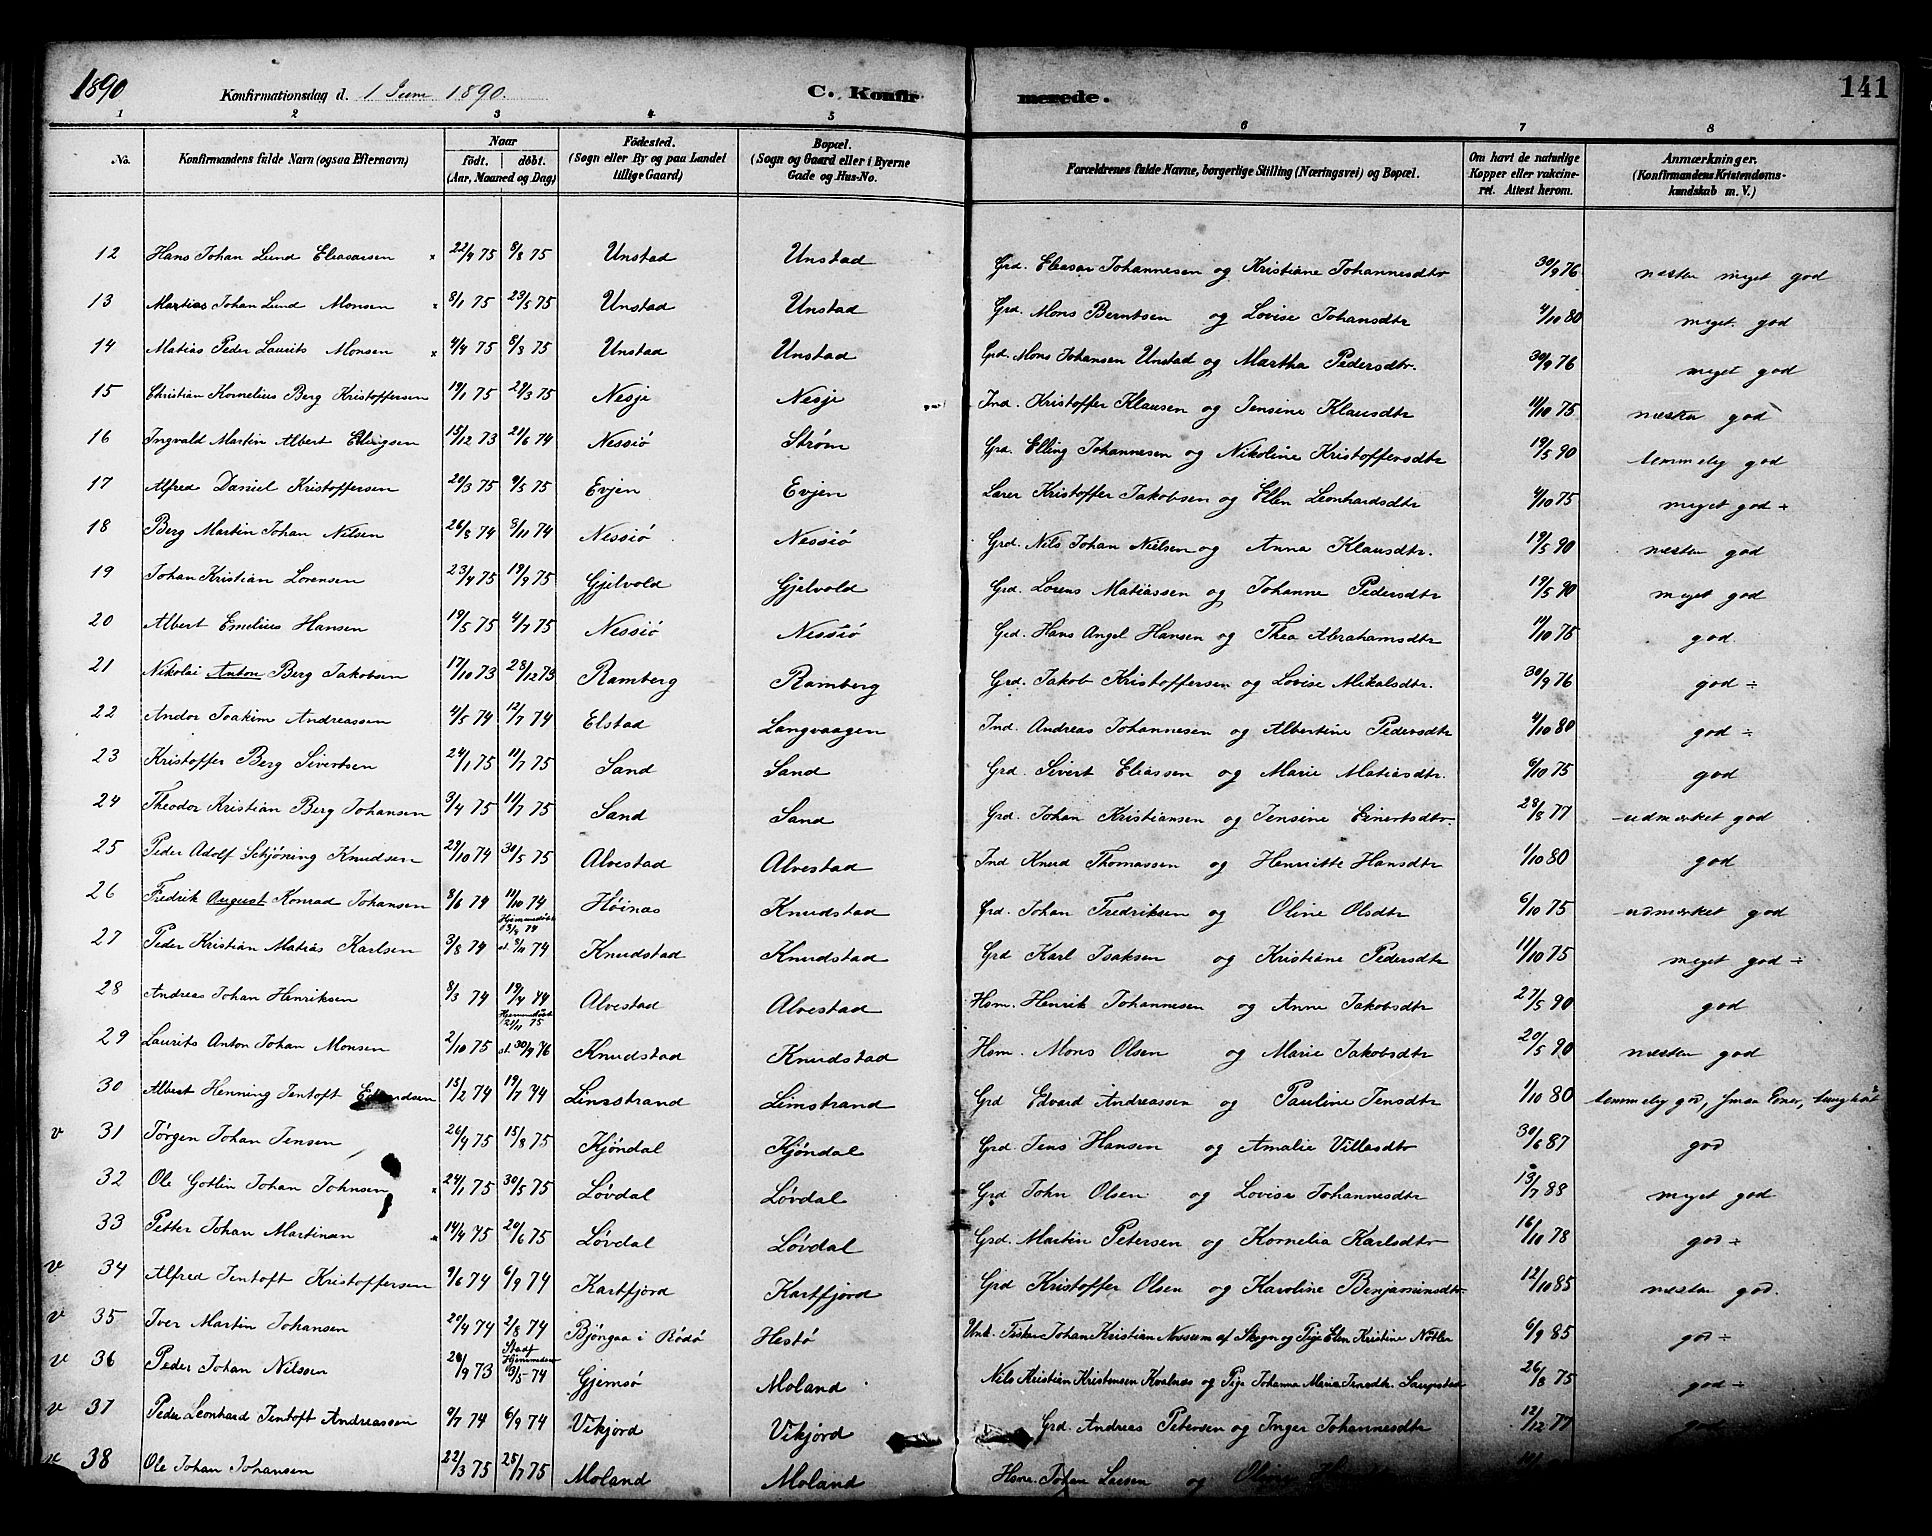 1890 Konfirmationsdag d. 1 Juni 1890. C. Konfirmerede. 141
1 2 3 4 5 6 7 8
No. Konfirmandens fulde Navn (ogsaa Efternavn) Naar født. døbt. (Aar, Maaned og Dag) Fødested. (Sogn eller By og paa Landet tillige Gaard) Bopæl. (Sogn og Gaard eller i Byerne Gade og Hus-No. Forældrenes fulde Navne, borgerlige Stilling (Næringsvei) og Bopæl. Om havt de naturlige Kopper eller vakcineret. Attest herom. Anmærkninger. (Konfirmandens Kristendomskundskab m. V.)
12 Hans Johan Lund Eleasarsen x 22/4 75 8/8 75 Unstad Unstad Grd. Eleasar Johannesen og Kristiane Johannesdtr 30/9 76 næsten meget god
13 Martias Johan Lund Monsen x 8/1 75 23/5 75 Unstad Unstad Grd. Mons Berntsen og Lovise Johansdtr 4/10 80 meget god
14 Matias Peder Laurits Monsen x 4/4 75 8/8 75 Unstad Unstad Grd. Mons Johansen Unstad og Martha Pedersdtr. 30/9 76 meget god
15 Christian Kornelius Berg Kristoffersen 19/1 75 29/3 75 Nesje Nesje Ind. Kristoffer Klausen og Jensine Klausdtr 11/10 75 næsten god
16 Ingvald Martin Albert Ellingsen 15/12 73 21/6 74 Nessiö Strøm Grd. Elling Johannesen og Nikoline Kristoffersdtr 19/5 90 temmelig god
17 Alfred Daniel Kristoffersen 20/3 75 9/5 75 Evjen Evjen Lærer Kristoffer Jakobsen og Ellen Leonhardsdtr 4/10 75 meget god ÷
18 Berg Martin Johan Nilsen 26/8 74 8/11 74 Nessiö Nessiö Grd. Nils Johan Nielsen og Anna Klausdtr. 19/5 90 næsten god
19 Johan Kristian Lorensen 23/4 75 19/9 75 Gjelvold Gjelvold Grd. Lorens Matiassen og Johanne Pedersdtr 19/5 90 meget god
20 Albert Emelius Hansen 19/5 75 4/7 75 Nessiö Nessiö Grd. Hans Angel Hansen og Thea Abrahamsdtr 11/10 75 god.
21 Nikolai Anton Berg Jakobsen 17/10 73 28/12 73 Ramberg Ramberg Grd. Jakob Kristoffersen og Lovise Mikalsdtr. 30/9 76 god ÷
22 Andor Joakim Andreassen 4/5 74 12/7 74 Elstad Langvaagen Ind. Andreas Johannesen og Albertine Pedersdtr 4/10 80 god ÷
23 Kristoffer Berg Sivertsen 24/1 75 11/7 75 Sand Sand Grd. Sivert Eliassen og Marie Matiasdtr. 6/10 75 god
24 Theodor Kristian Berg Johansen 3/4 75 11/7 75 Sand Sand Grd. Johan Kristiansen og Jensine Einertsdtr. 28/8 77 udmærket god
25 Peder Adolf Schjöning Knudsen 29/10 74 30/5 75 Alvestad Alvestad Ind Knud Thomassen og Henritte Hansdtr 1/10 80 god
26 Fredrik August Konrad Johansen 8/6 74 11/10 74 Höinas Knudstad Grd. Johan Fredriksen og Oline Olsdtr 6/10 75 udmærket god
27 Peder Kristian Matias Karlsen 3/8 74 Hjemmedöbt 13/9 74 st. 9/11 74 Knudstad Knudstad Grd Karl Isaksen og Kristiane Pedersdtr 11/10 75 meget god ÷
28 Andreas Johan Henriksen 8/3 74 19/4 74 Alvestad Alvestad Hsm. Henrik Johannesen og Anne Jakobsdtr 27/5 90 god
29 Laurits Anton Johan Monsen 2/10 75 Hjemmedöbt 12/11 75 st. 30/9 76 Knudstad Knudstad Hsm. Mons Olsen og Marie Jakobsdtr 20/5 90 næsten god
30 Albert Henning Jentoft Edvardsen 15/2 74 19/7 74 Limstrand Limstrand Grd Edvard Andreassen og Pauline Jensdtr 1/10 80 temmelig god,
v 31 Jörgen Johan Jensen 26/4 75 15/8 75 Kjöndal Kjöndal Grd. Jens Hansen og Amalie Villasdtr 30/6 87 god
32 Ole Gotlin Johan Johnsen x 24/1 75 30/5 75 Lövdal Lövdal Grd John Olsen og Lovise Johannesdtr 13/7 88 meget god
33 Petter Johan Martinan x 14/4 75 20/6 75 Lövdal Lövdal Grd. Martin Petersen og Kornelia Karlsdtr 16/10 78 god ÷
v 34 Alfred Jentoft Kristoffersen 9/6 74 6/9 74 Kartfjord Kartfjord Grd Kristoffer Olsen og Karoline Benjaminsdtr 12/10 85 næsten god.
v 35 Iver Martin Johansen 20/4 74 2/8 74 Bjöngaa i Rödö Hestö Unk. Fisker Johan Kristian af Skogn og Pige Elen Kristine 6/9 85 god ÷
v 36 Peder Johan Nilssen 20/9 73 Hjemmedöbt 13/5 74 Gjemsö Moland Nils Kristian Kristensen Kvalnes og Pige Johanna Maria 26/8 75 god ÷
v 37 Peder Leonhard Jentoft Andreassen 9/7 74 6/9 74 Vikjord Vikjord Grd. Andreas Petersen og Inger Johannesdtr 12/12 77 god
v 38 Ole Johan Johansen 22/3 75 25/7 75 Moland Moland Hsm. Johan Larsen og